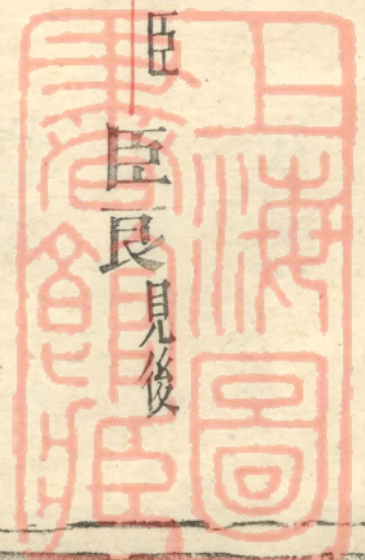 臣
臣艮見後
上海圖
書館藏